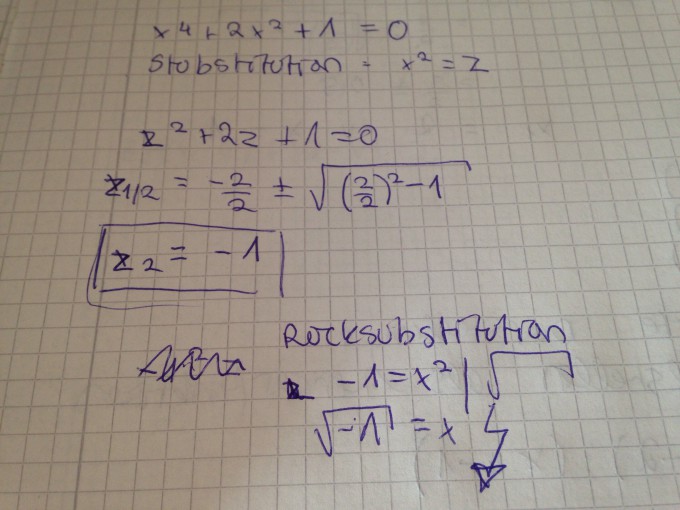 x⁴ + 2x² + 1 = 0
Stubstitution = x² = z
z² + 2z + 1 = 0
z1/2 = -2/2 ± √((2/2)² - 1)
z2 = -1
Rücksubstitution
-1 = x² | √
√-1 = x